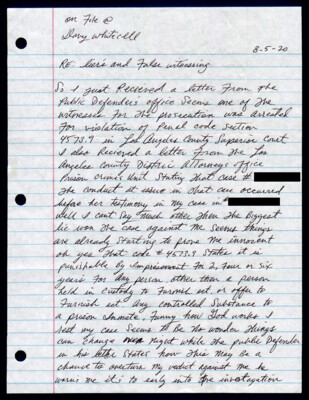 on File @
Davy Whitcell
8-5-20
RE: lier's and False witnessing
So I just Recieved a letter From the
Public Defenders office Seems one of the
witnesses For the prosecution was arrested
For violation of Penal code section
4573.9 in Los Angeles County Superior Court
I also Recieved a letter From the Los
Angeles County District Attorneys office
Prison crimes Unit Stating that case #
the conduct at issue in that case occurred
before her testimony in my case in
well I can't Say much other then the Biggest
lie won the case against me Seems things
are already Starting to prove me innocent
oh yes that code #4573.9 States it is
punishable by imprisonment For 2, Four or six
years For any person other than a person
held in custody to Furnish sit or offer to
Furnish sit any controlled Substance to
a prison inmate, Funny how God works I
rest my case Seems to Be No wonder things
can Change over Night while the public Defender
in his letter States how this May be a
chance to overturn my verdict against me he
warns me it is to early into the investagation